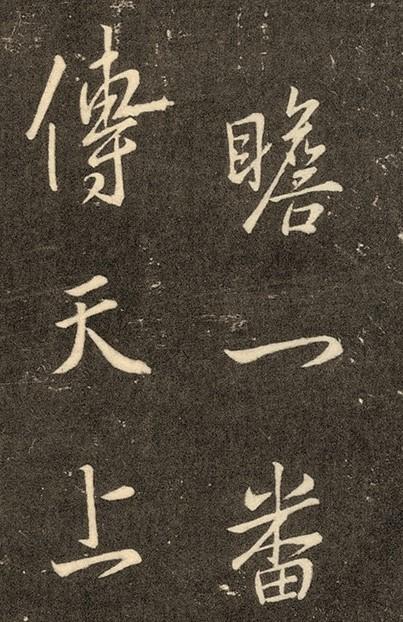 瞻一番
傳天上